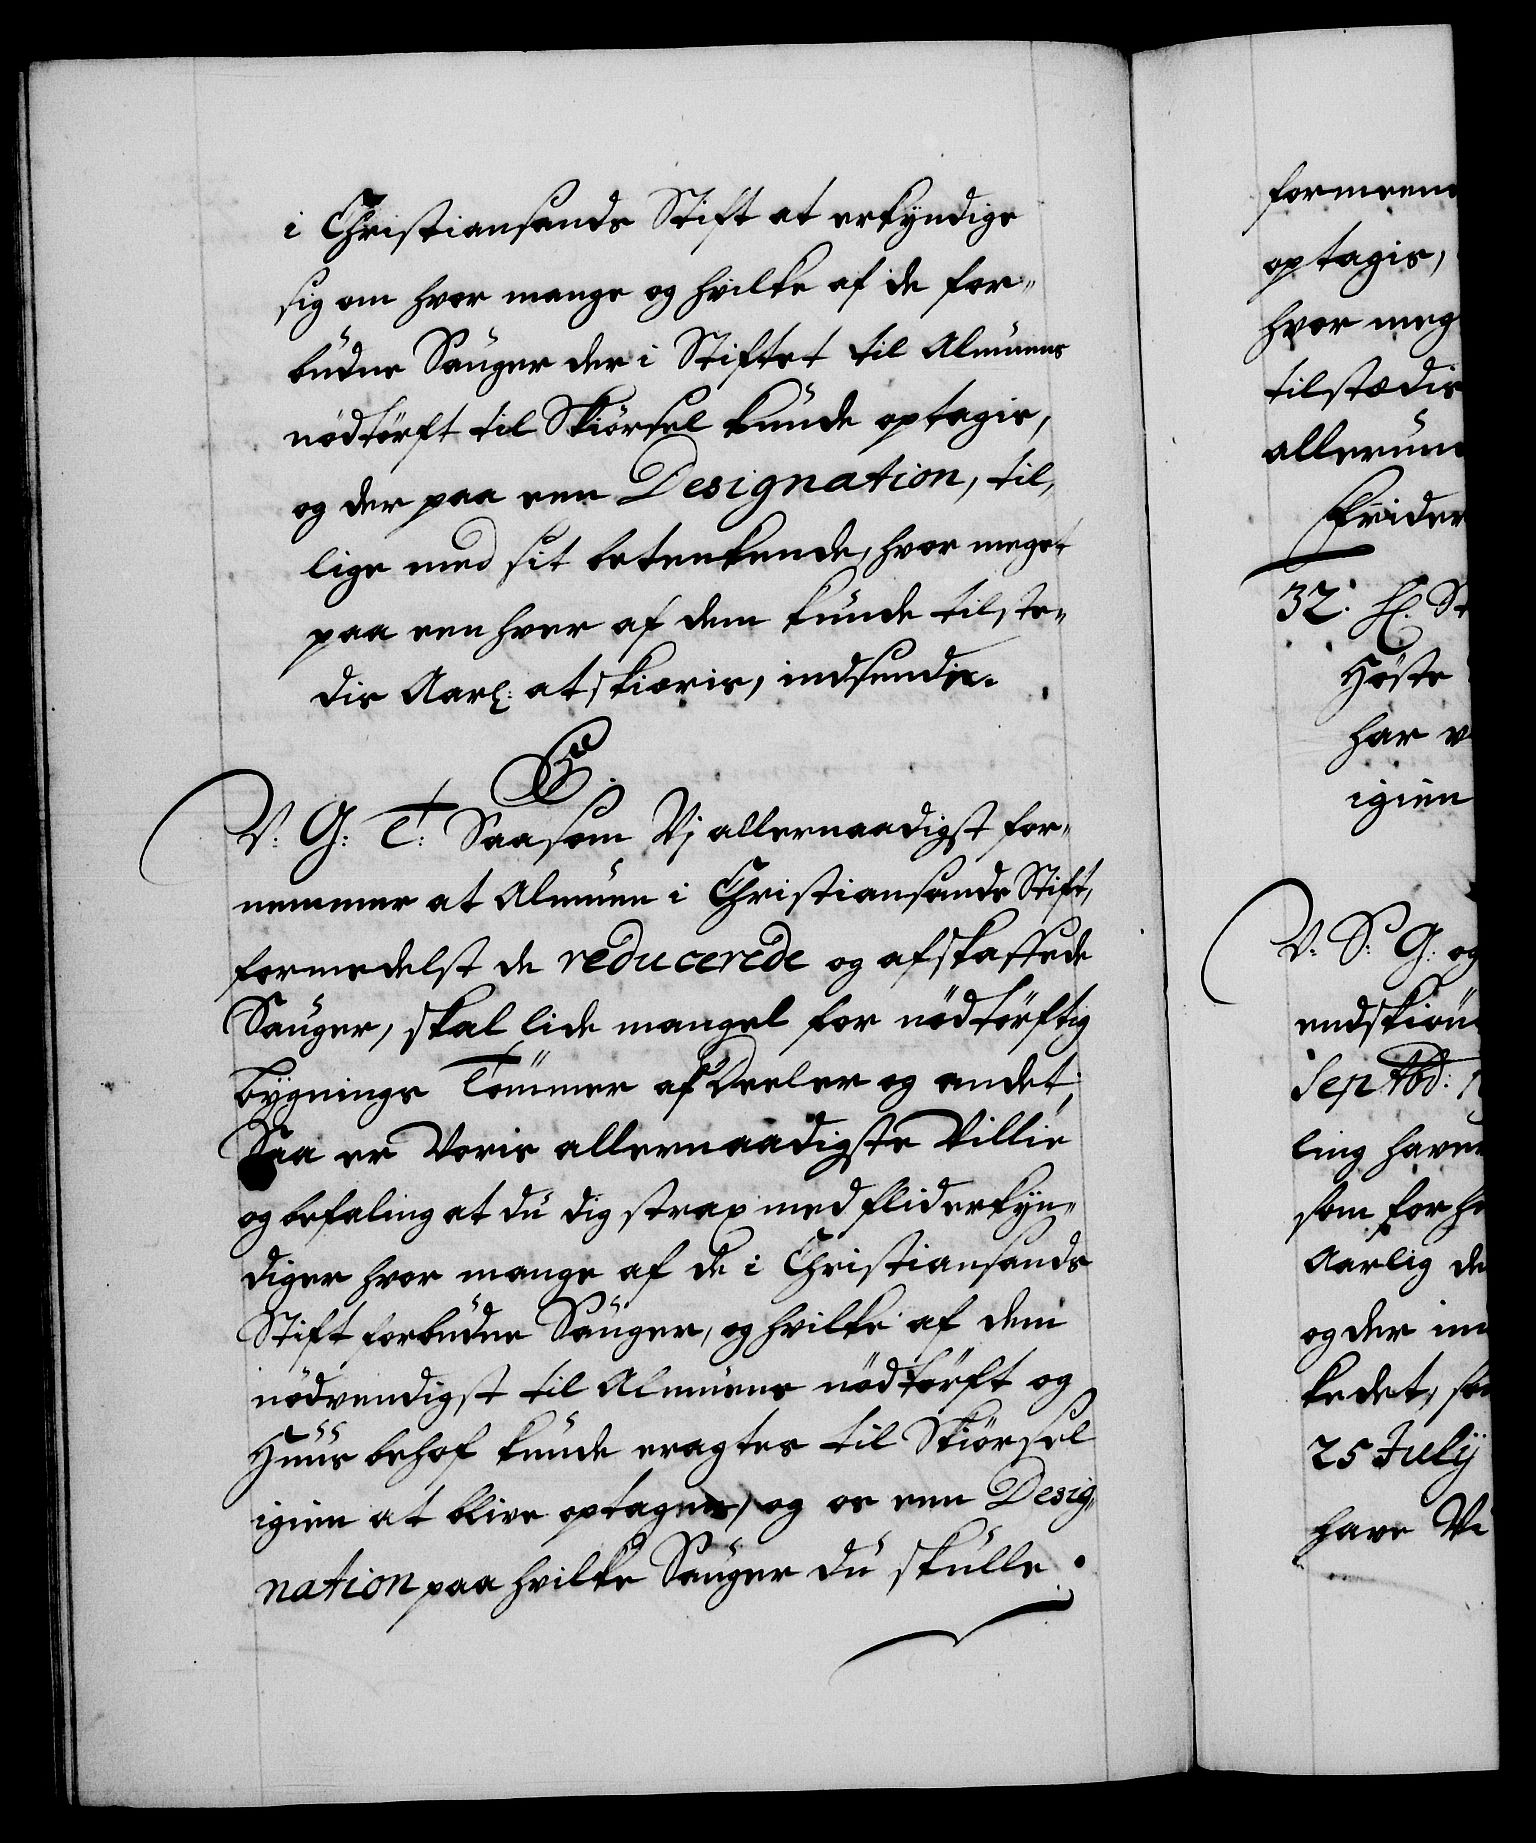 i Christiansands Stift at erkyndige
sig om hvor mange og hvilke af de for-
budne Sauger der i Stiftet til Almuens
nödtörft til Skiörsel kunde optagis,
og der paa een Designation, til,
lige med sit betenkende, hvor meget
paa een hver af dem kunde tilste-
dis Aarl: at skiæris, indsende.
C.
V: G: T: Saasom Vj allernaadigst for-
nemmer at Almuen i Christiansands Stift,
formedelst de reducerede og afskaffede
Sauger, skal lide mangel for nödtörftig
bygnings Tömmer af Deeler og andet;
Saa er Voris allernaadigste Villie
og befaling at du dig strax med flid erkyn-
diger hvor mange af de i Christiansands
Stift forbudne Sauger, og hvilke af dem
nödvendigst til Almuens nödtörft og
Huus behof kunde eragtes til Skiörsel
igien at blive optagne, og os een Desig-
nation paa hvilke Sauger du skulle
formeene
optagis,
hvor meg
tilstædis
allerun
Frider
32. H. St
Höste
har v
igien
V: S: G: og
endskiön
Septbd:
ling have
som for h
Aarlig de
og der in
kedet, so
25 July
have Vi